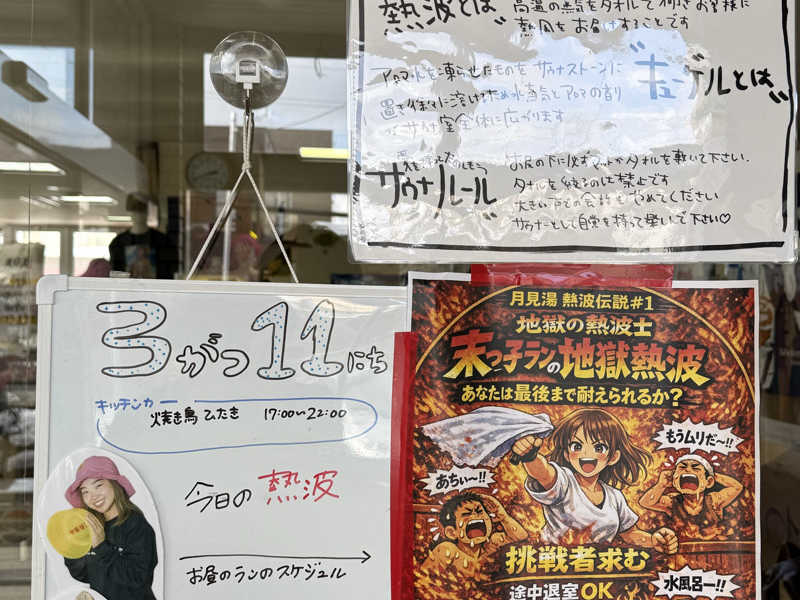 熱波とは
高温の熱気をタオルで仰ぎお客様に
熱風をお届けすることです
キューゲルとは
アロマ水を凍らせたものをサウナストーンに
置き徐々に溶けるため水蒸気とアロマの香り
がサウナ室全体に広がります
サウナルール
お尻の下に必ずマットかタオルを敷いて下さい.
タオルを絞るのは禁止です
大きい声での会話もやめてください
サウナーとして自覚を持って整いて下さい♡
3がつ11にち
キッチンカー
焼き鳥 ひたき 17:00~22:00
今日の熱波
お昼のランのスケジュール
月見湯 熱波伝説#1
地獄の熱波士
末っ子ランの地獄熱波
あなたは最後まで耐えられるか?
もうムリだ~!!
あちぃ~!!
挑戦者求む
途中退室OK
水風呂ー!!